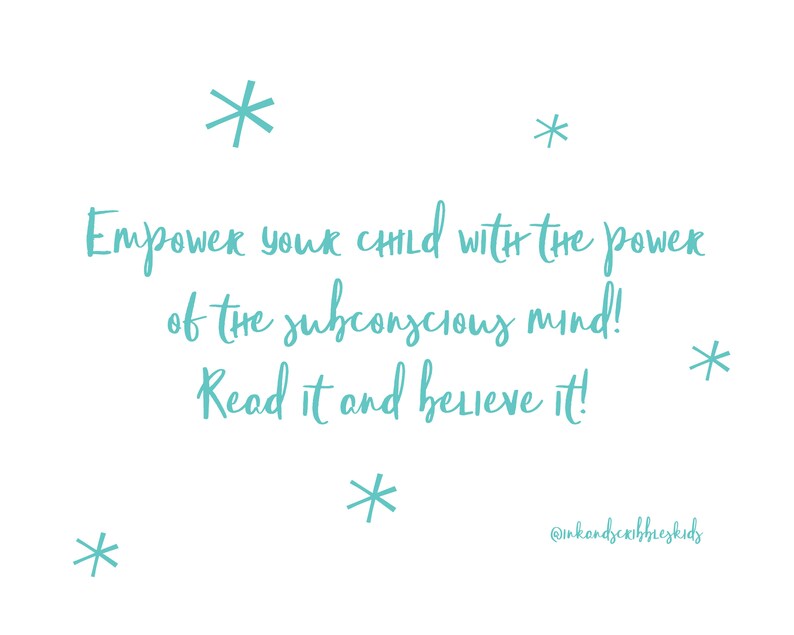 Empower your child with the power
of the subconscious mind!
Read it and believe it!
@inkandscribbleskids